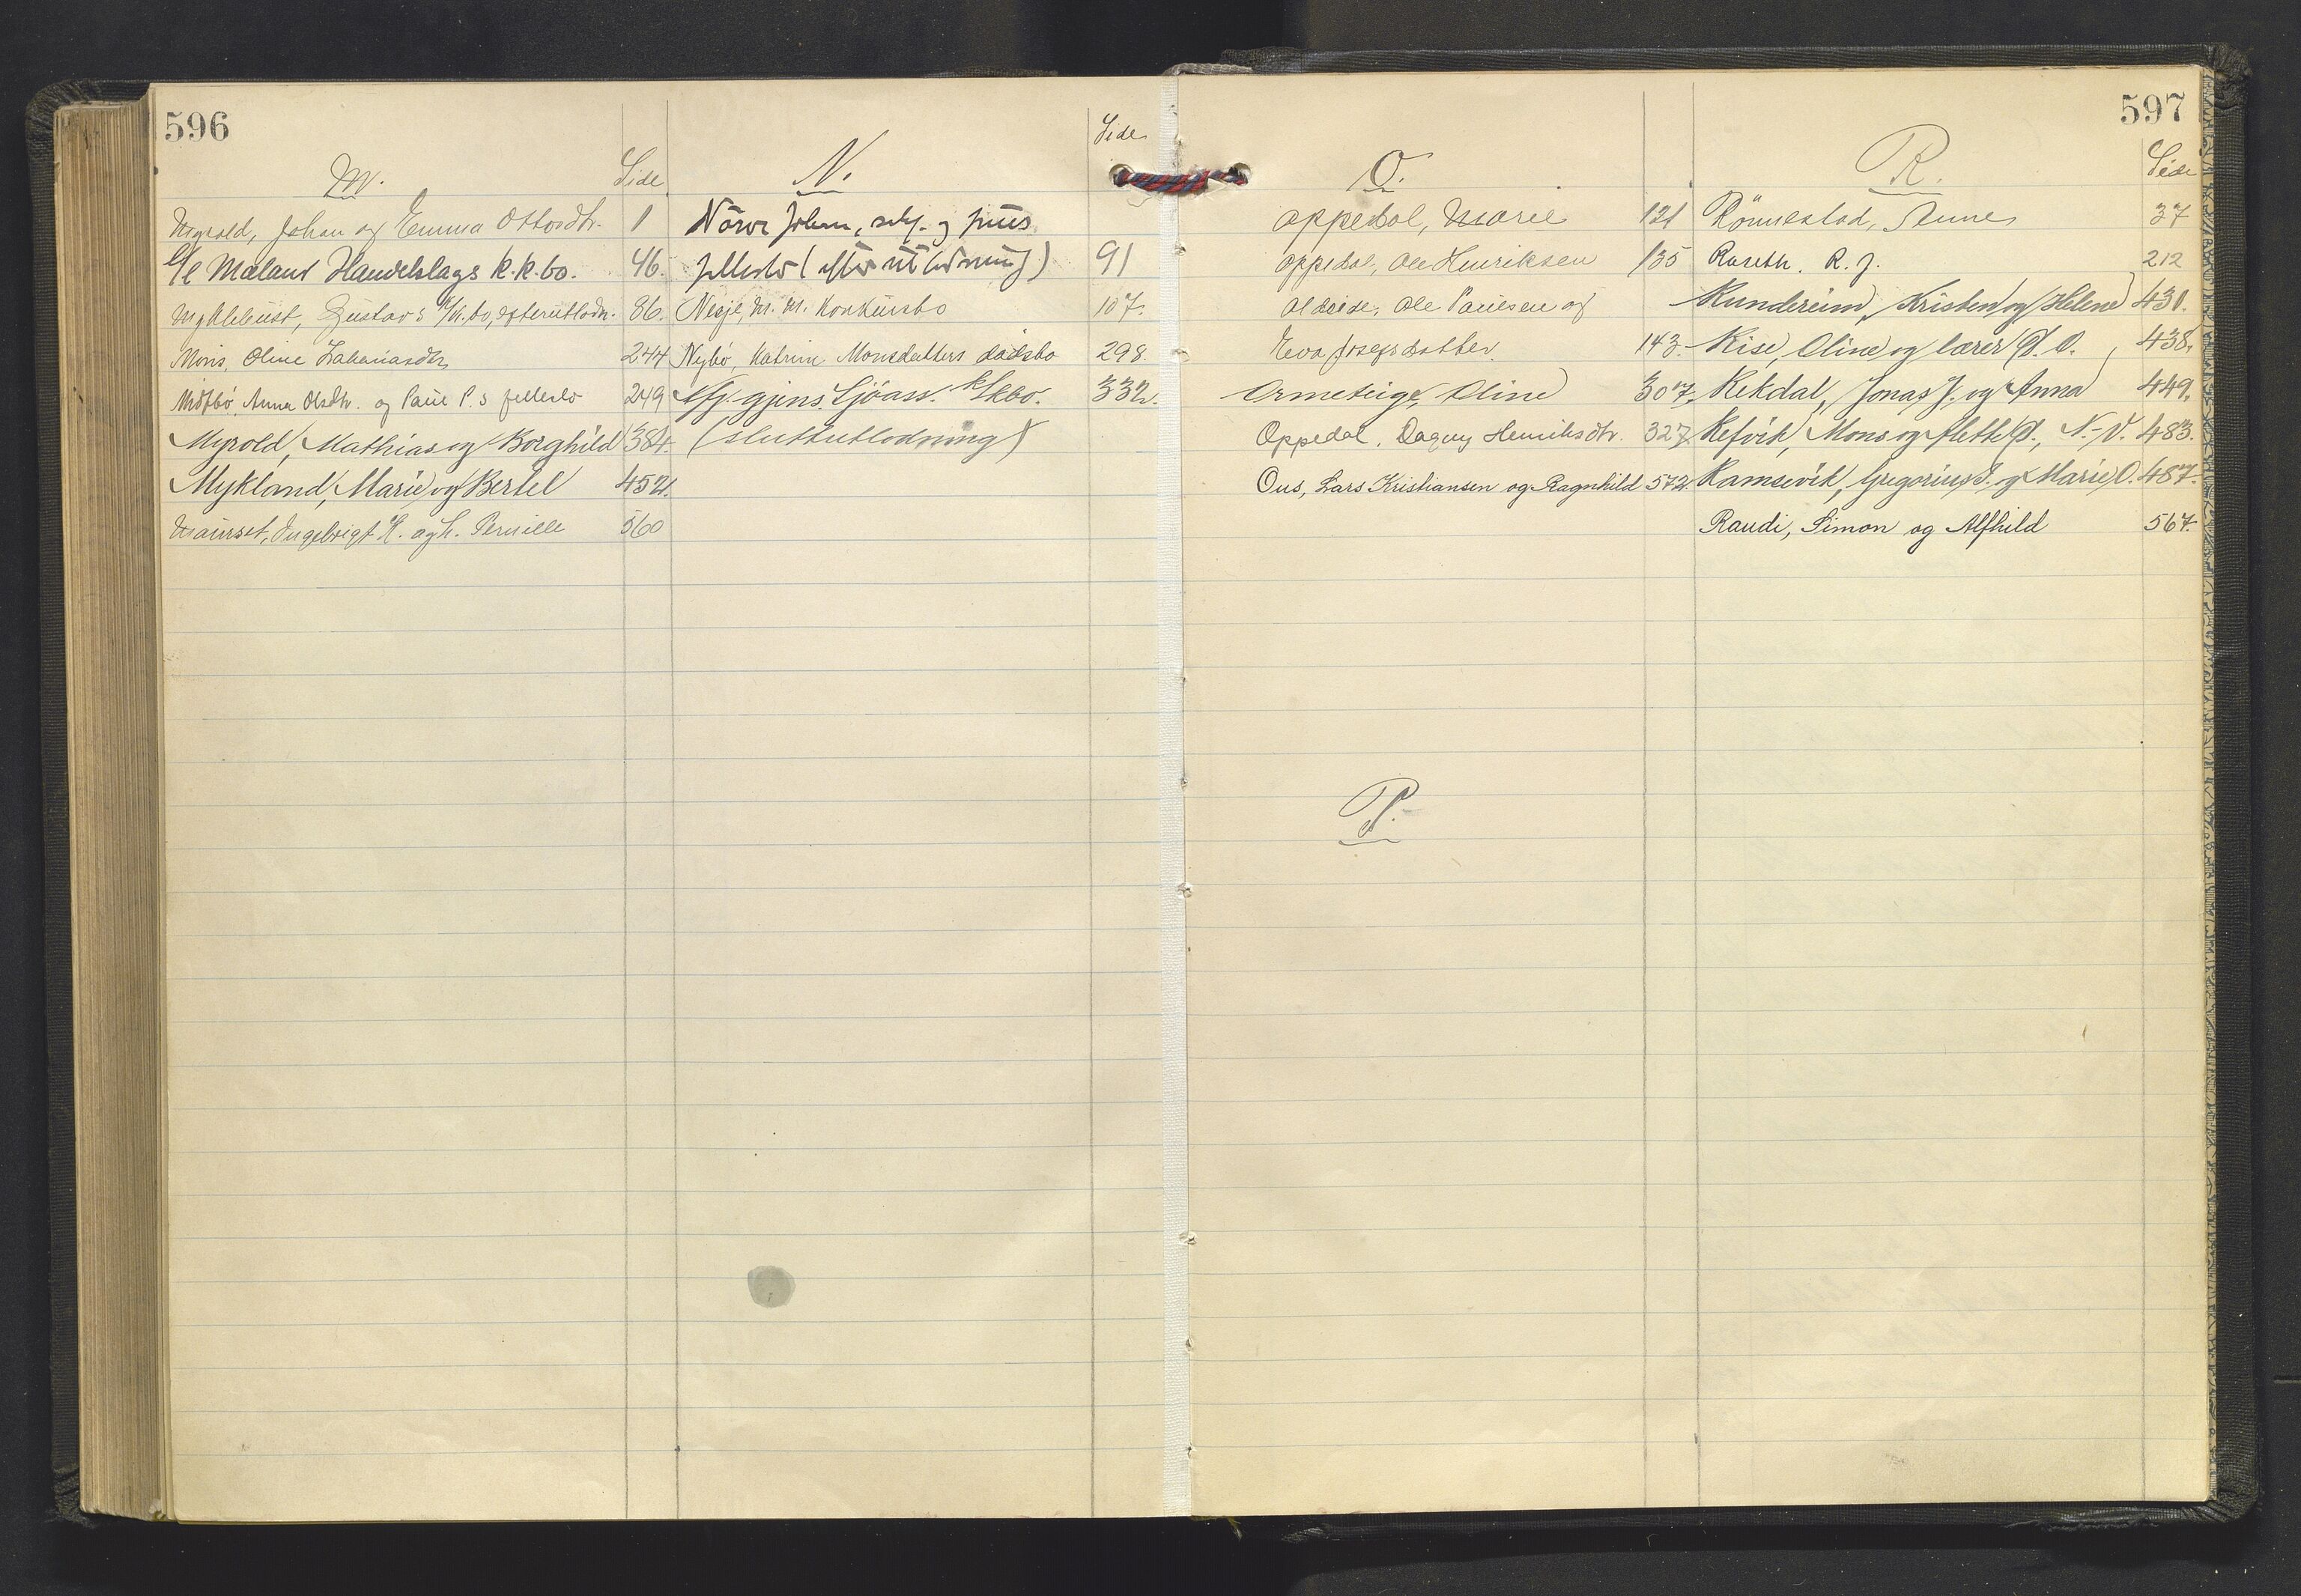 596
M.
Side
Myrold, Johan og Emma Ottosdtr. 1
A/l Måland Handelslags k.k.bo. 46.
Myklebust, Gustavs k/k.bo, efterutlodn. 86.
Moris, Oline Zakariasdtr 244
Midtbø, Anna Olsdtr. og Paul P.s fellesbo 249
Myrold, Mathias og Borghild 384.
Mykland, Marie og Bertel 452.
Maurset, Ingebrigt K. og h. Pernille 560
N.
Side
Nårve Johan, og
fellesbo (efterutlodning) 91
Nesje, M. M. Konkursbo 107.
Nybø, Katrine Monsdatters dødsbo 298.
Nfj. gjens. Sjöass. k/kbo. 332.
(sluttutlodning)
597
O.
Oppedal, Marie 121
Oppedal, Ole Henriksen 135
Aldeide, Ole Paulsen og
Eva Josefsdatter 143.
Ormeteige, Oline 307.
Oppedal, Dagny Henriksdtr. 327
Ous, Lars Kristiansen og Ragnhild 572.
P.
R.
Side
Rönnestad, Anne 37
Raseth. R. J. 212
Rundereim, Kristen og Helene 430.
Rise, Oline og lærer P. O. 438.
Rekdal, Jonas J. og Anna 449.
Refvik, Mons og Mette P., N.-V. 483.
Ramsevik, Gregorius S. og Marie O. 487.
Raudi, Simon og Alfhild 567.